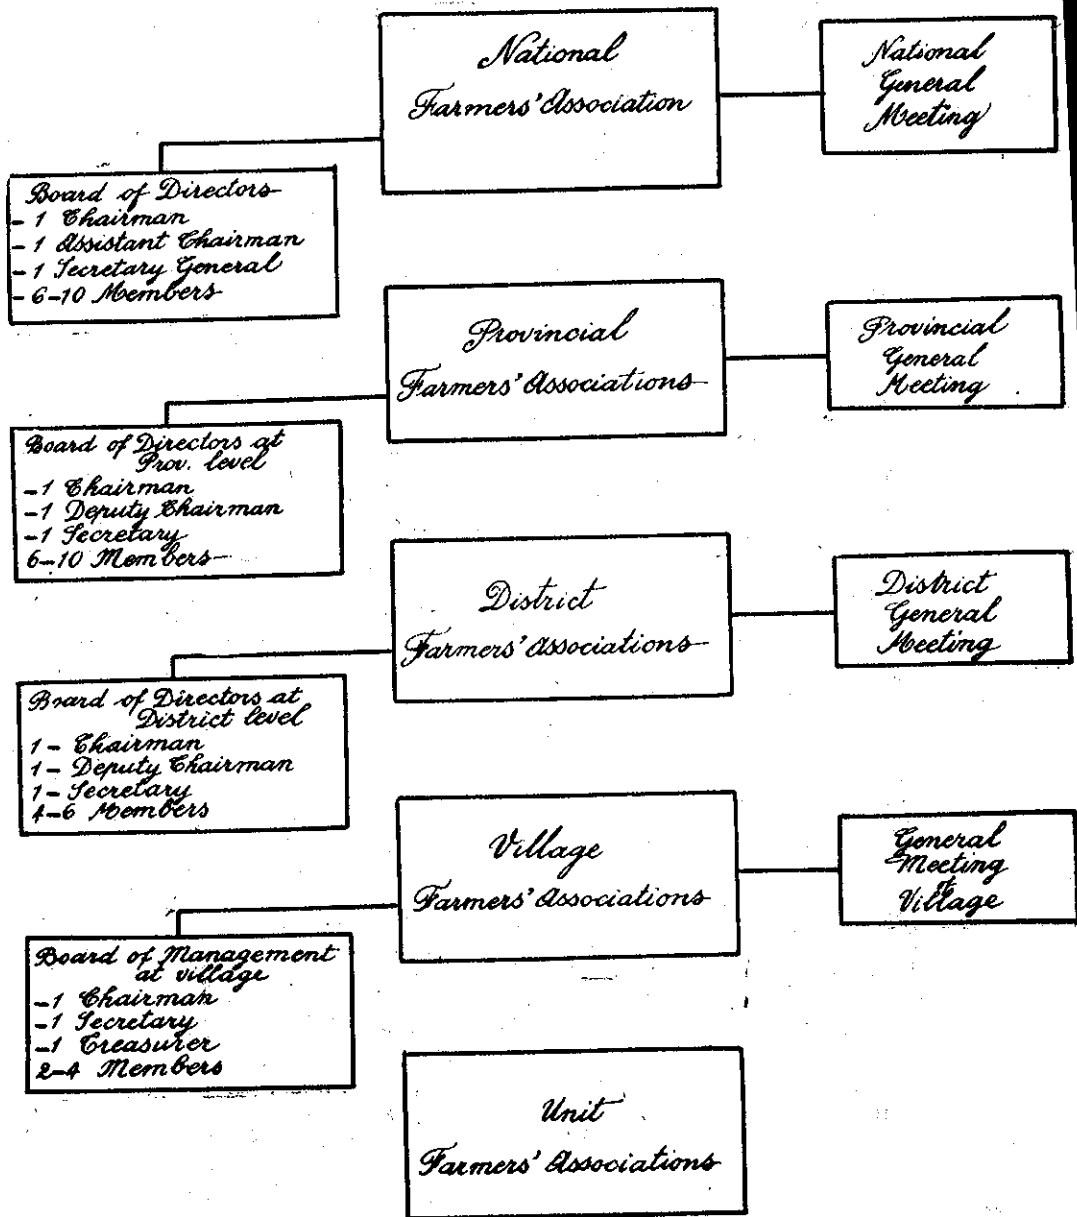 National
Farmers' Association
National
General
Meeting
Board of Directors
- 1 Chairman
- 1 Assistant Chairman
- 1 Secretary General
- 6-10 Members
Provincial
Farmers' Associations
Provincial
General
Meeting
Board of Directors at
Prov. level
-1 Chairman
-1 Deputy Chairman
-1 Secretary
6-10 Members
District
Farmers' Associations
District
General
Meeting
Board of Directors at
District level
1- Chairman
1- Deputy Chairman
1- Secretary
4-6 Members
Village
Farmers' Associations
General
Meeting
at
Village
Board of Management
at village
-1 Chairman
-1 Secretary
-1 Treasurer
2-4 Members
Unit
Farmers' Associations